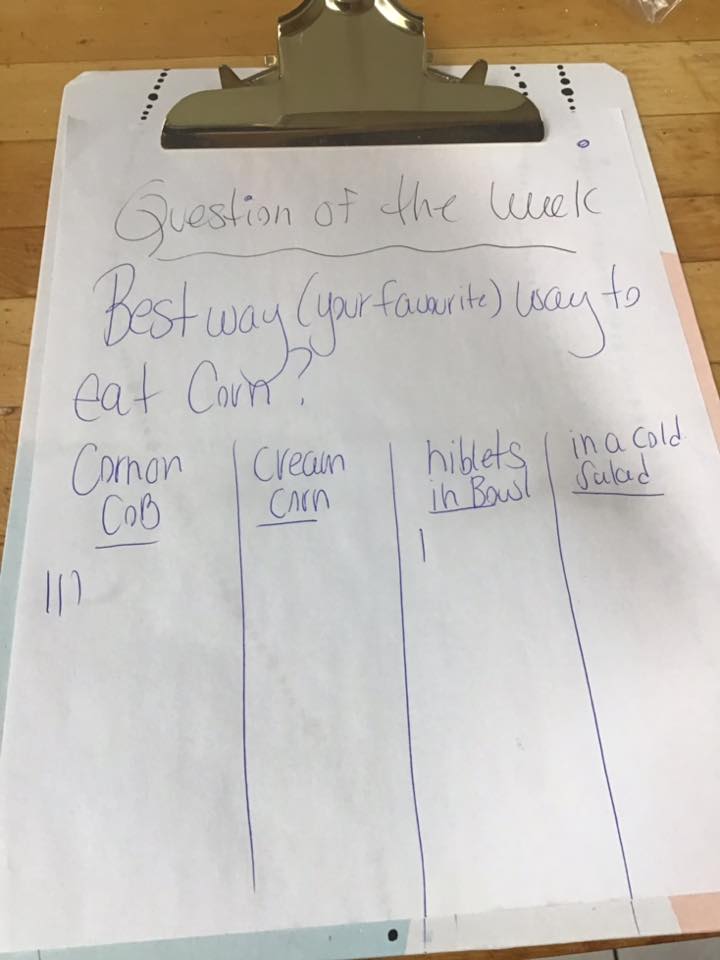 Question of the Week
Best way (your favourite) way to
eat Corn?
Cornon
COB
Cream
Corn
niblets
in Bowl
in a cold
Salad